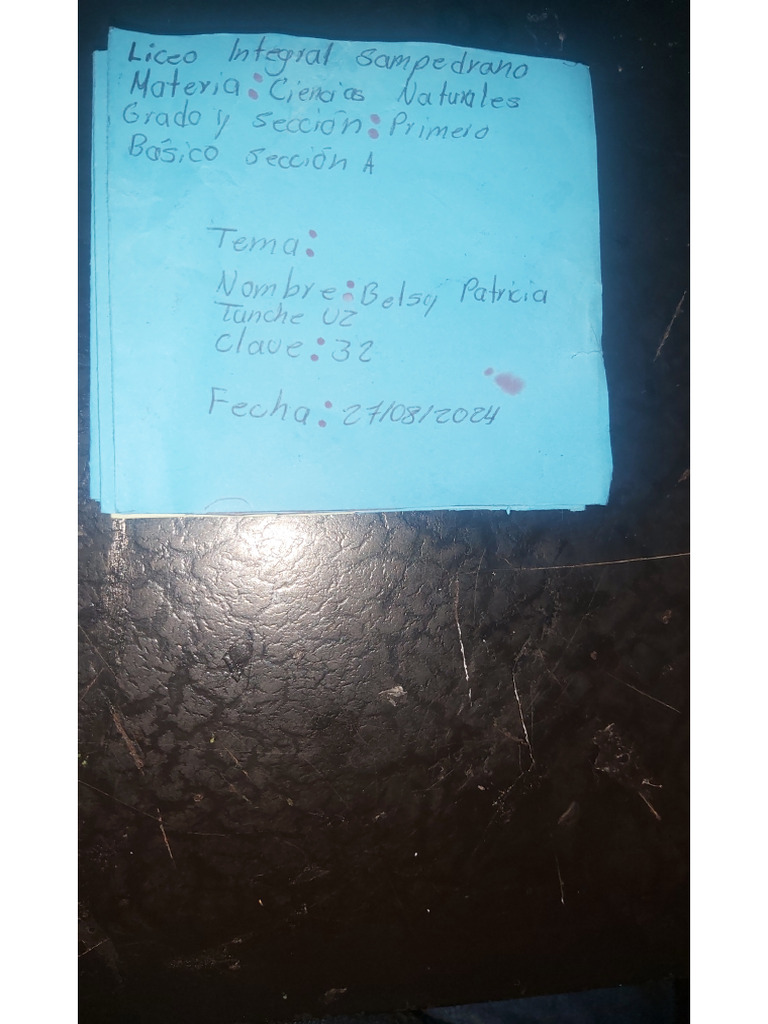 Liceo Integral Sampedrano
Materia: Ciencias Naturales
Grado y Sección: Primero
Básico Sección A
Tema:
Nombre: Belsy Patricia
Tunche Uz
Clave: 32
Fecha: 27/08/2024